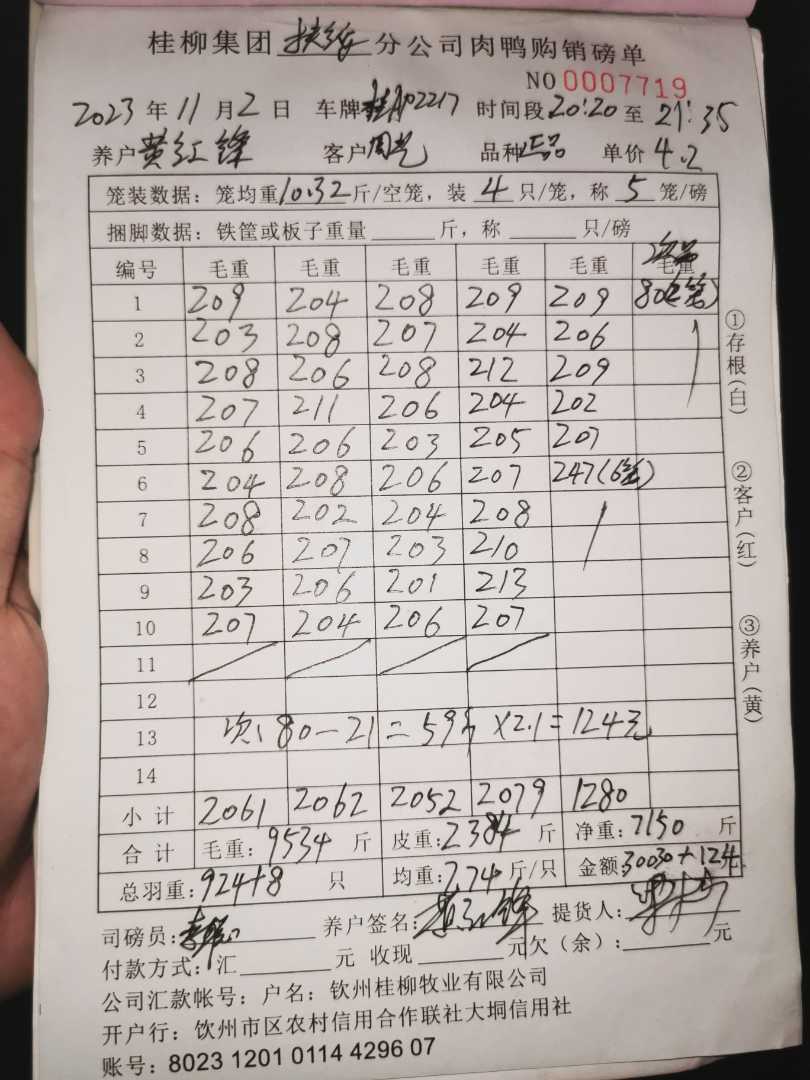 桂柳集团扶绥分公司肉鸭购销磅单
NO 0007719
2023年11月2日 车牌桂A02217 时间段20:20至21:35
养户黄红锋 客户周光 品种正品 单价4.2
笼装数据：笼均重10.32斤/空笼，装4只/笼，称5笼/磅
捆脚数据：铁筐或板子重量 斤，称 只/磅
编号 毛重 毛重 毛重 毛重 毛重 次品 毛重
1 209 204 208 209 209 80(2笼)
2 203 208 207 204 206
3 208 206 208 212 209
4 207 211 206 204 202
5 206 206 203 205 207
6 204 208 206 207 247(6笼)
7 208 202 204 208
8 206 207 203 210
9 203 206 201 213
10 207 204 206 207
11
12
13 次：80-21=59斤×2.1=124元
14
小计 2061 2062 2052 2079 1280
合计 毛重：9534斤 皮重：2384斤 净重：7150斤
总羽重：924+8只 均重：7.74斤/只 金额：30030+124
司磅员： 养户签名：黄红锋 提货人：
付款方式：汇 元 收现 元欠（余）： 元
公司汇款帐号：户名：钦州桂柳牧业有限公司
开户行：钦州市区农村信用合作联社大垌信用社
账号：8023 1201 0114 4296 07
①存根(白)
②客户(红)
③养户(黄)